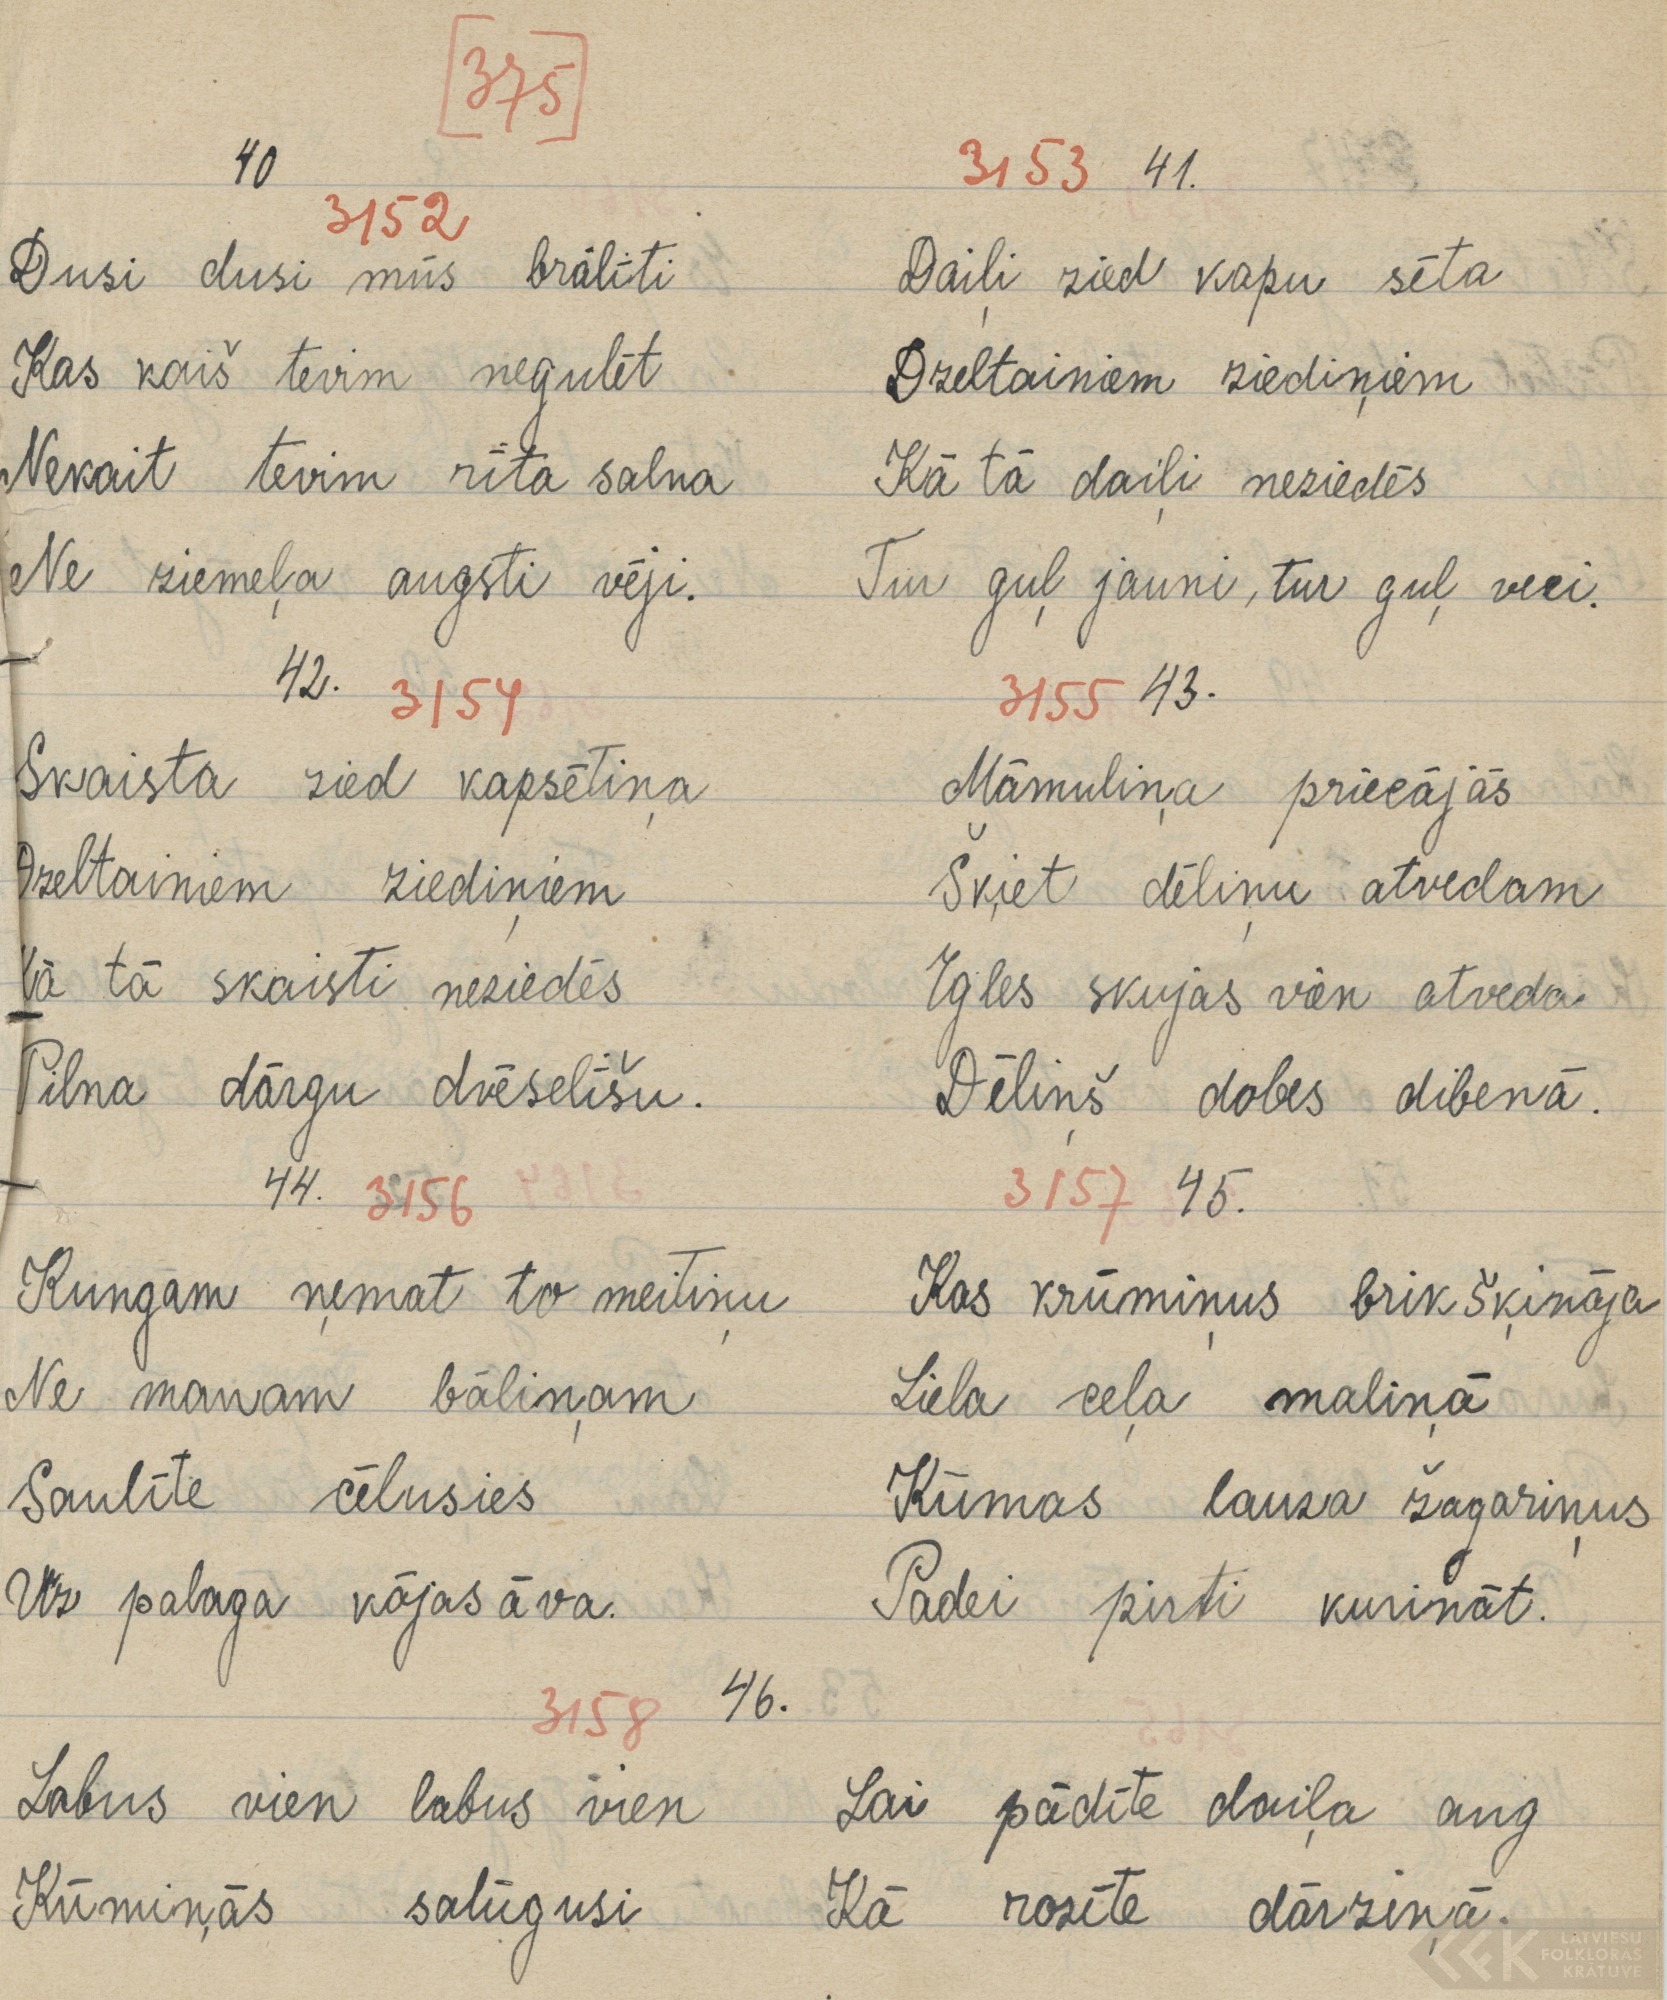 [375]
40
3152
Dusi dusi mūs brālīti
Kas kaiš tevim negulēt
Nekait tevim rīta salna
Ne ziemeļa augsti vēji.
3153 41.
Daiļi zied kapu sēta
Dzeltainiem ziediņiem
Kā tā daiļi neziedēs
Tur guļ jauni, tur guļ veci.
42. 3154
Skaista zied kapsētiņa
Dzeltainiem ziediņiem
Kā tā skaisti neziedēs
Pilna dārgu dvēselīšu.
3155 43.
Māmuliņa priecājās
Šķiet dēliņu atvedam
Egles skujas vien atveda
Dēliņš dobes dibenā.
44. 3156
Kungam ņemat to meitiņu
Ne manam bāliņam
Saulīte cēlusies
Uz palaga kājas āva.
3157 45.
Kas krūmiņus brikšķināja
Liela ceļa maliņā
Kūmas lauza žagariņus
Padei pirti kurināt.
3158 46.
Labus vien labus vien
Kūmiņās salūgusi
Lai pādīte daiļa aug
Kā rozīte dārziņā.
LATVIEŠU
FOLKLORAS
KRĀTUVE